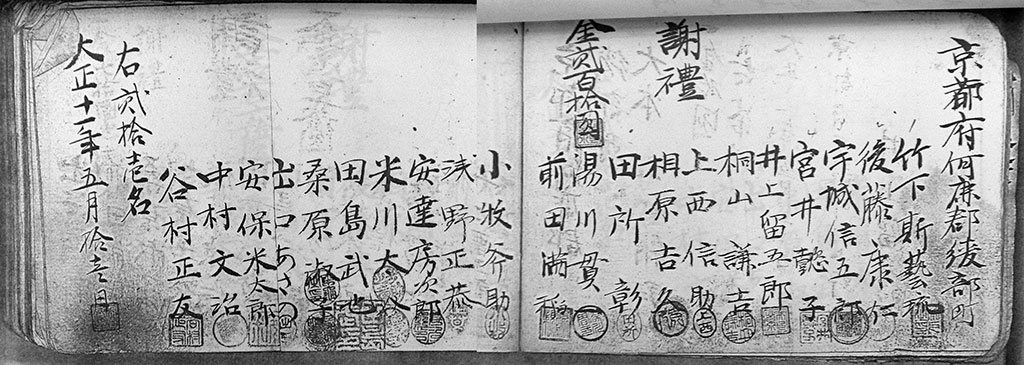 京都府何鹿郡綾部町
竹下斯藝琉
後藤康仁
宇城信五郎
宮井懿子
井上留五郎
桐山謙吉
上西信助
相原吉久
田所彰
湯川貫一
前田満稲
謝禮
金貳百拾圓
小牧斧助
浅野正恭
安達房次郎
米川太介
田島武
桑原淑子
出口あさの
安保米太郎
中村文治
谷村正友
右貳拾壱名
大正十一年五月拾壱日